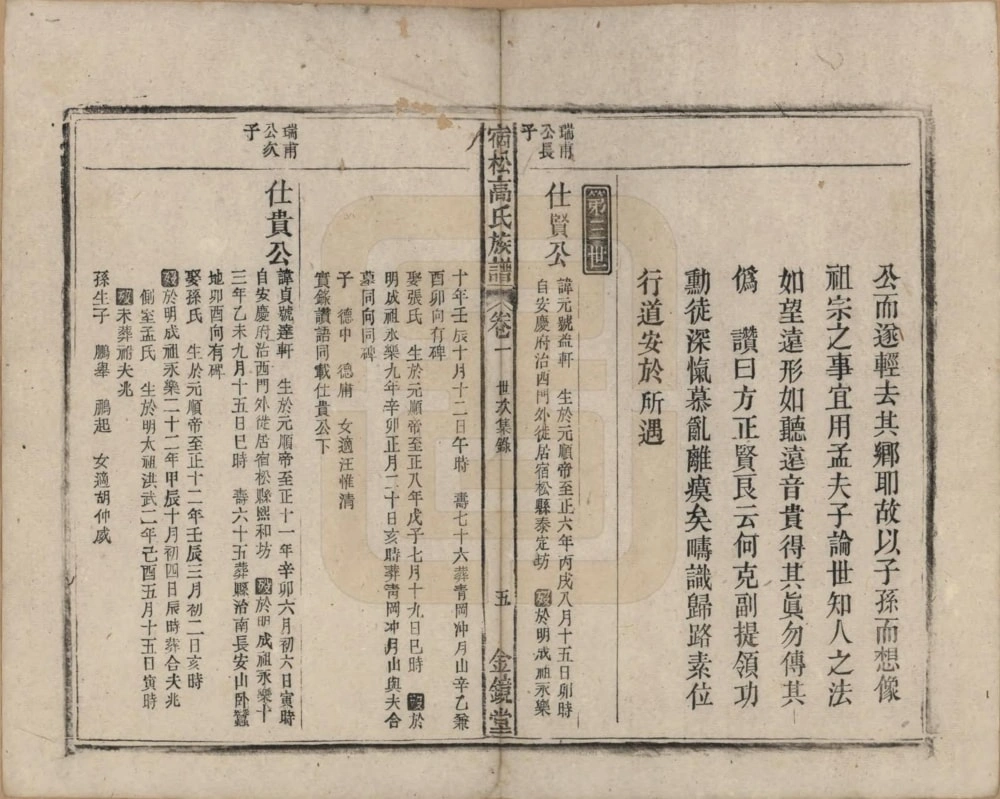 公而遂輕去其鄉耶故以子孫而想像
祖宗之事宜用孟夫子論世知人之法
如望遠形如聽遠音貴得其眞勿傳其
僞　讚曰方正賢良云何克副提領功
勳徒深愾慕亂離瘼矣疇識歸路素位
行道安於所遇
第三世
瑞甫
公長
子
仕賢公
諱元號益軒　生於元順帝至正六年丙戌八月十五日卯時
自安慶府治西門外徙居宿松縣泰定坊　歿於明成祖永樂
宿松高氏族譜　卷一　世次集錄　五　金鏡堂
十年壬辰十月十二日午時　壽七十六葬靑岡冲月山辛乙兼
酉卯向有碑
娶張氏　生於元順帝至正八年戊子七月十九日巳時　歿於
明成祖永樂九年辛卯正月二十日亥時葬靑岡冲月山與夫合
墓同向同碑
子　德中　德庸　女適汪惟淸
實錄讚語同載仕貴公下
瑞甫
公次
子
仕貴公
諱貞號達軒　生於元順帝至正十一年辛卯六月初六日寅時
自安慶府治西門外徙居宿松縣熙和坊　歿於明成祖永樂十
三年乙未九月十五日巳時　壽六十五葬縣治南長安山卧蠶
地卯酉向有碑
娶孫氏　生於元順帝至正十二年壬辰三月初二日亥時
歿於明成祖永樂二十二年甲辰十月初四日辰時葬合夫兆
側室孟氏　生於明太祖洪武二年己酉五月十五日寅時
歿未葬祔夫兆
孫生子　鵬舉　鵬起　女適胡仲威